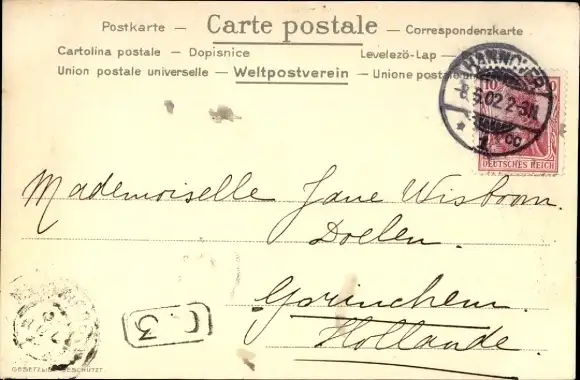 Postkarte — Carte postale — Correspondenzkarte
Cartolina postale — Dopisnice Levelező-Lap —
Union postale universelle — Weltpostverein — Unione postale
HANNOVER
8.6.02.2-3N.
1 CC
10
DEUTSCHES REICH
Mademoiselle Jane Wisboom.
Doelen.
Gorinchem.
Hollande.
C 3
GESETZLICH GESCHÜTZT.